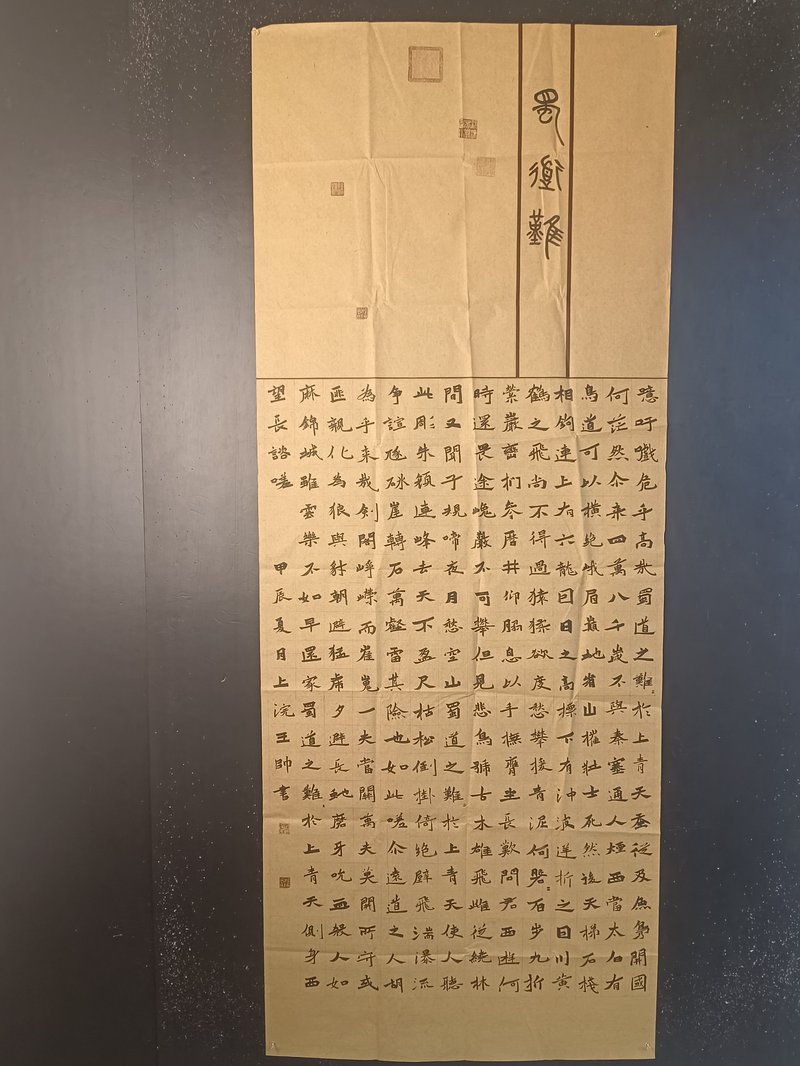 蜀道難
噫吁戲危乎高哉蜀道之難=於上青天蚕從及魚鳧開國
何茫然尒来四萬八千歲不與秦塞通人煙西當太白有
鳥道可以橫絶峨眉巔地崩山摧壯士死然後天梯石棧
相鉤連上有六龍回日之高標下有沖波逆折之回川黄
鶴之飛尚不得過猿猱欲度愁攀援青泥何盤=百步九折
縈巖巒捫參歷井仰脅息以手撫膺坐長歎問君西遊何
時還畏途巉巖不可攀但見悲鳥號古木雄飛雌從繞林
間又聞子規啼夜月愁空山蜀道之難於上青天使人聽
此彫朱顔連峰去天不盈尺枯松倒掛倚絶壁飛湍瀑流
争諠豗砯崖轉石萬壑雷其險也如此嗟尒遠道之人胡
為乎来哉劍閣崢嶸而崔嵬一夫當關萬夫莫開所守或
匪親化為狼與豺朝避猛虎夕避長蛇磨牙吮血殺人如
麻錦城雖雲樂不如早還家蜀道之難於上青天側身西
望長諮嗟 甲辰夏月上浣王帥書